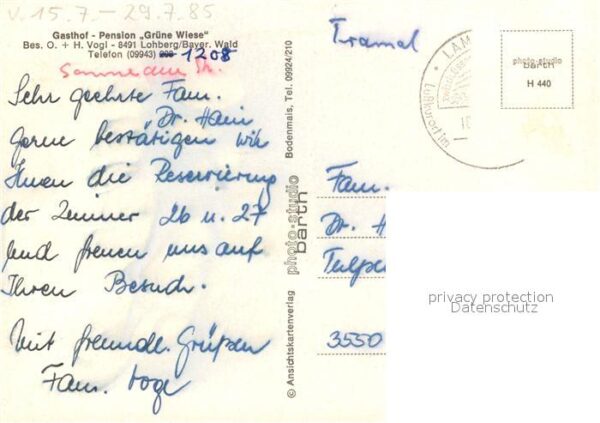 v. 15.7. - 29.7.85
Gasthof - Pension „Grüne Wiese“
Bes. O. + H. Vogl - 8491 Lohberg/Bayer. Wald
Telefon (09943) 1208
Sehr geehrte Fam.
Dr. Hain
gerne bestätigen wir
Ihnen die Reservierung
der Zimmer 26 u. 27
und freuen uns auf
Ihren Besuch.
Mit freundl. Grüßen
Fam. Vogl
© Ansichtskartenverlag photo-studio barth Bodenmais, Tel. 09924/210
Tramal
LAM
Luftkurort im
photo-studio
barth
H 440
Fam.
Dr. H
Tulpe
3550
privacy protection
Datenschutz